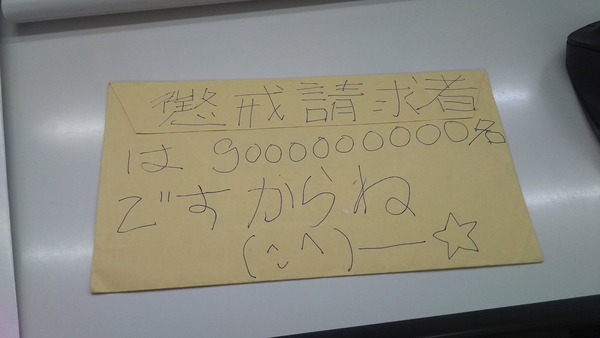 懲戒請求者
は9000000000名
ですからね
(^◡^)―☆